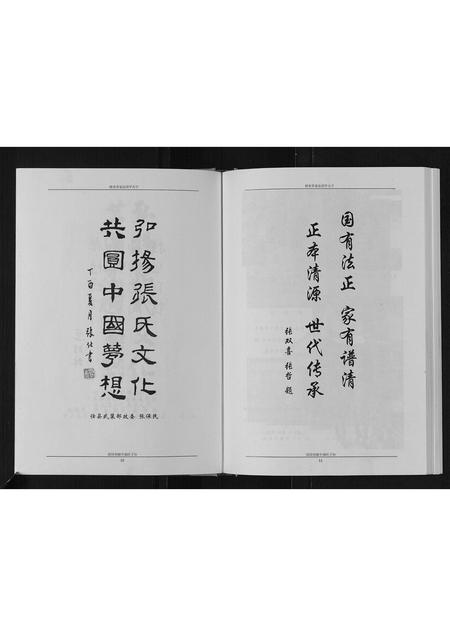 弘扬張氏文化
共圓中國夢想
丁酉夏月
任县武装部政委 张保民
10
国有法正 家有谱清
正本清源 世代传承
张双喜 张哲 题
11